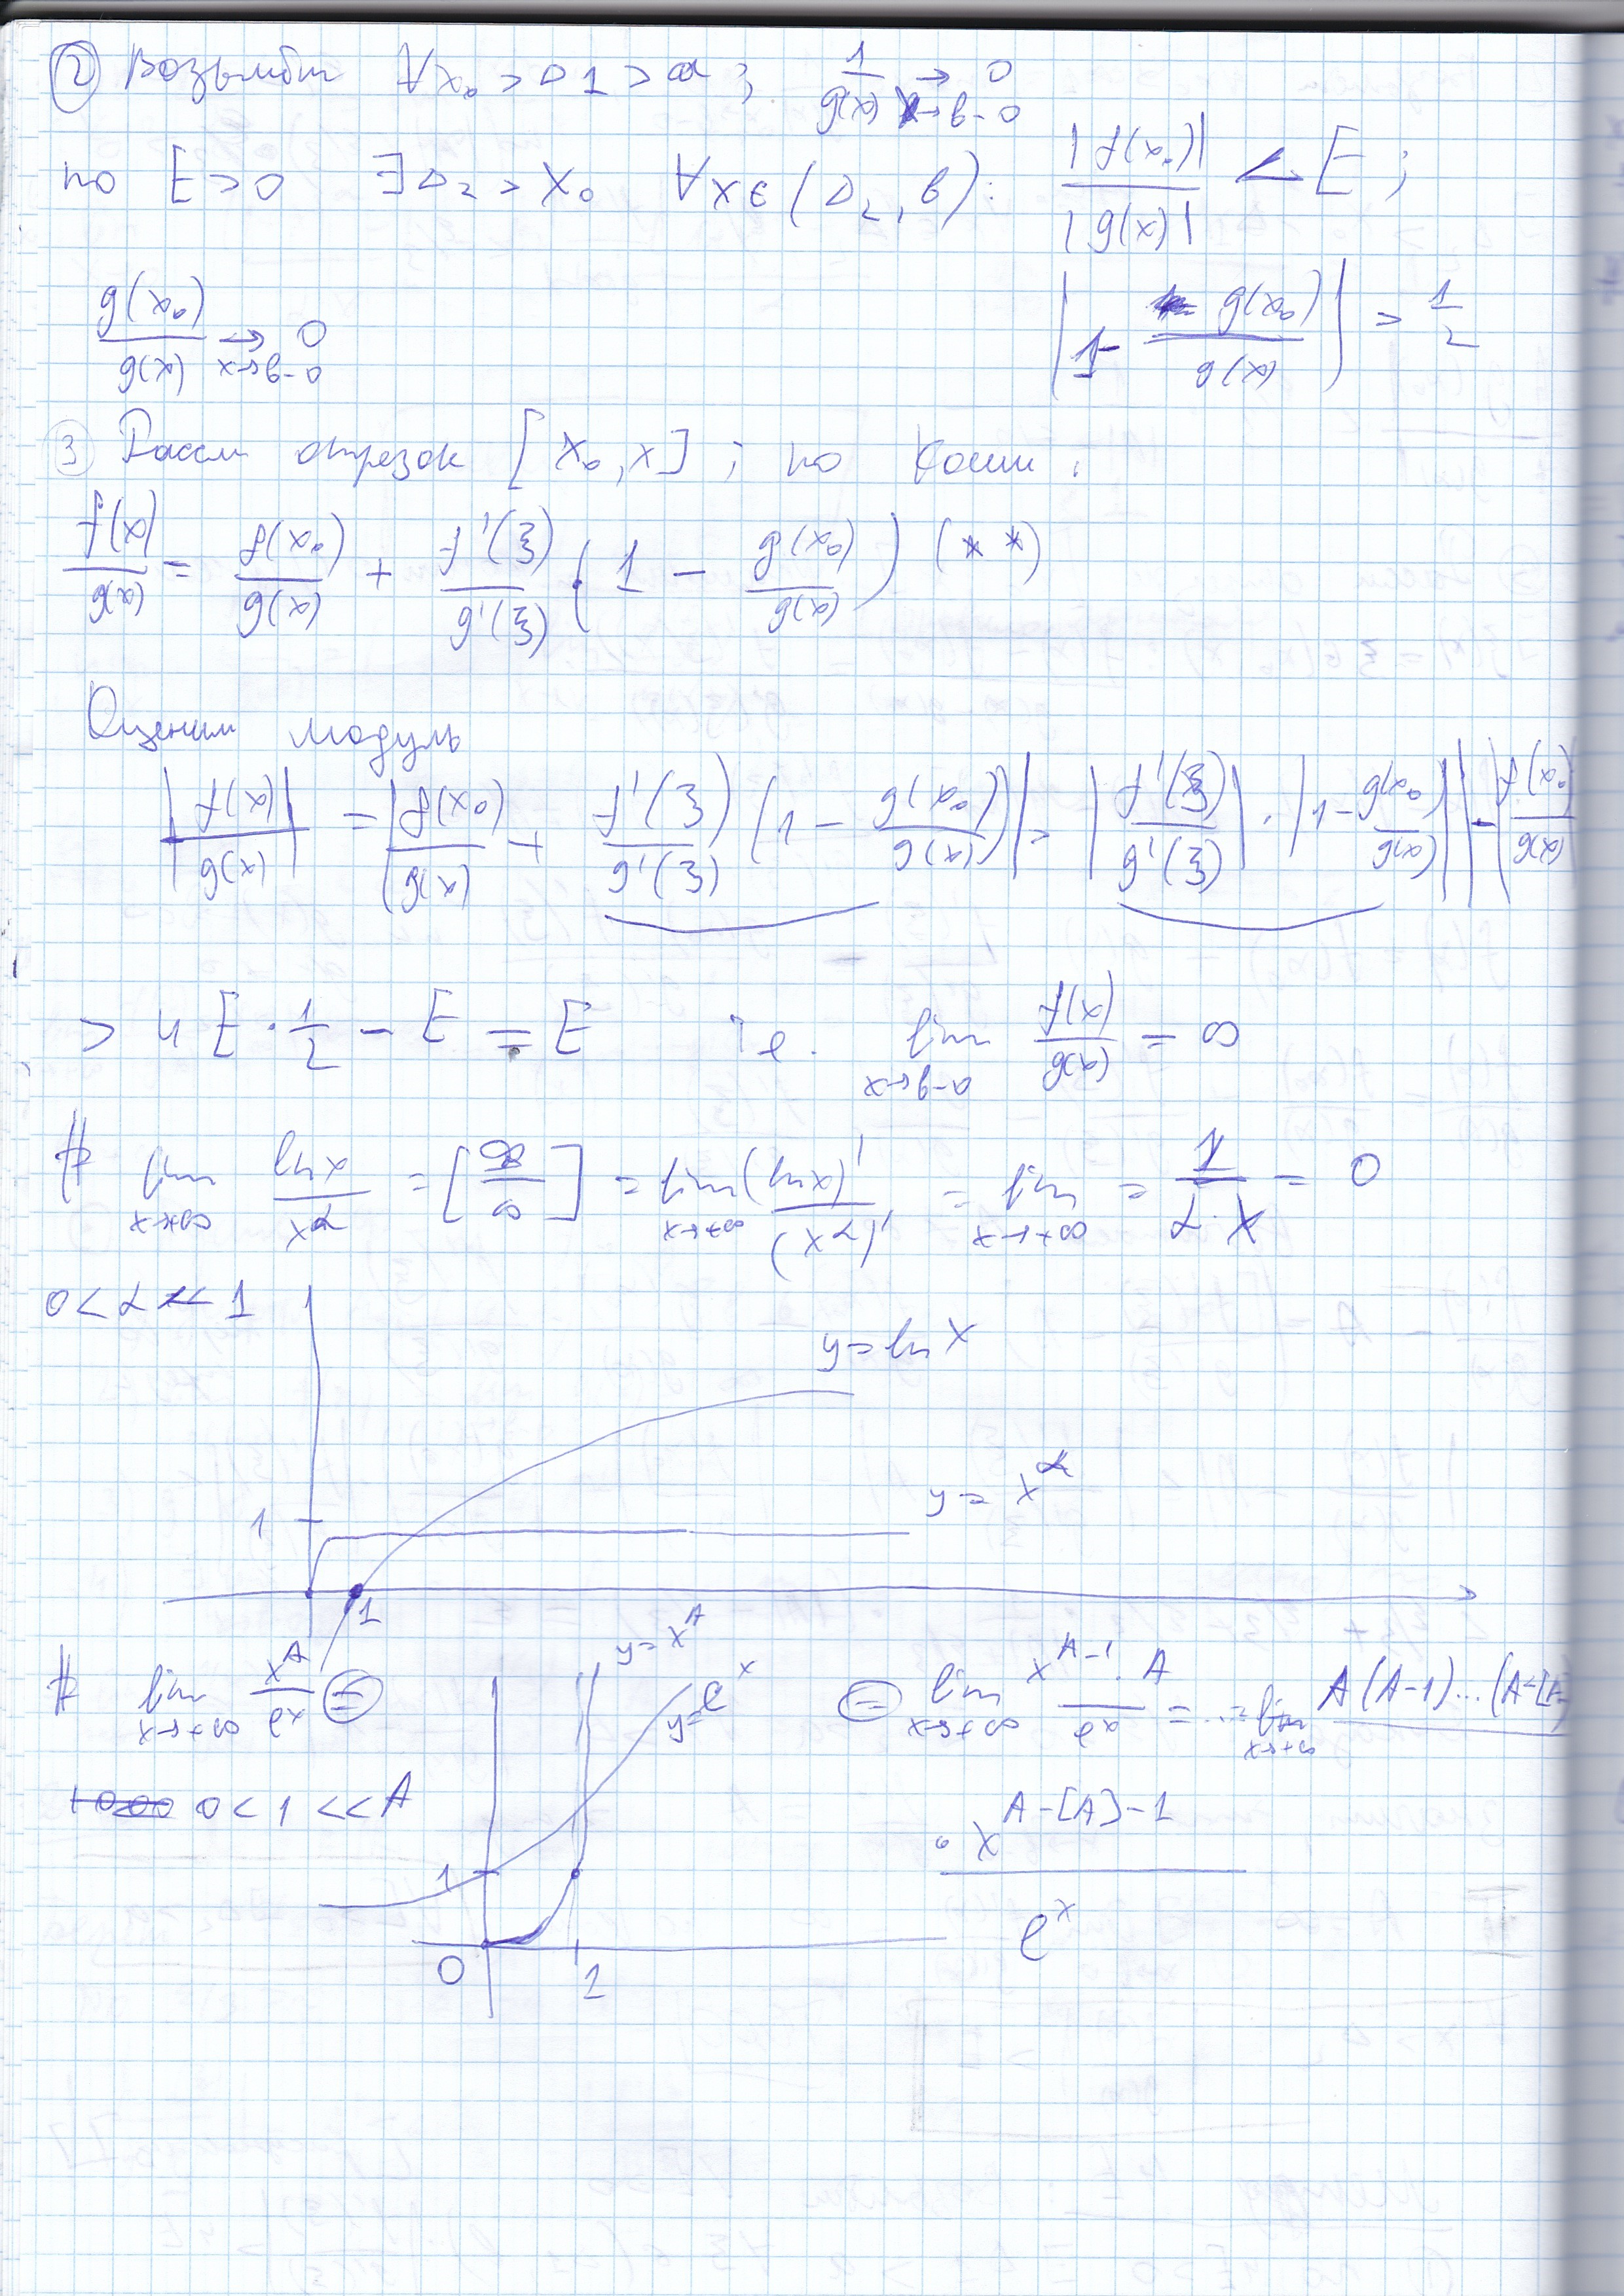 ② Возьмём ∀x₀ > Δ1 > a ; 1/g(x) → 0 x→b-0
по E>0 ∃Δ₂ > x₀ ∀x∈(Δ₂, b): |f(x₀)|/|g(x)| < E ;
g(x₀)/g(x) → 0 x→b-0 |1 - g(x₀)/g(x)| > 1/2
③ Рассм отрезок [x₀, x] ; по Коши :
f(x)/g(x) = f(x₀)/g(x) + f'(ξ)/g'(ξ) · (1 - g(x₀)/g(x)) (**)
Оценим модуль
|f(x)/g(x)| = |f(x₀)/g(x) + f'(ξ)/g'(ξ) (1 - g(x₀)/g(x))| > |f'(ξ)/g'(ξ)| · |1 - g(x₀)/g(x)| - |f(x₀)/g(x)|
> 4E · 1/2 - E = E т.е. lim x→b-0 f(x)/g(x) = ∞
# lim x→+∞ ln x / x^α = [∞/∞] = lim x→+∞ (ln x)' / (x^α)' = lim x→+∞ = 1/(α · x) = 0
0 < α << 1
y = ln x
y = x^α
1
1
# lim x→+∞ x^A / e^x = y = x^A y = e^x = lim x→+∞ x^(A-1) · A / e^x = ... = lim x→+∞ A(A-1)...(A-[A]
0 < 1 << A
· x^(A-[A]-1)
1
e^x
0 1